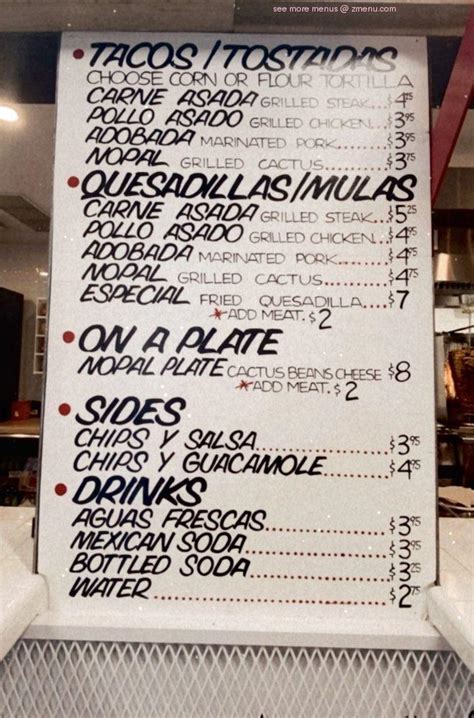 see more menus @ zmenu.com
• TACOS / TOSTADAS
CHOOSE CORN OR FLOUR TORTILLA
CARNE ASADA GRILLED STEAK...$4
POLLO ASADO GRILLED CHICKEN...$3.95
ADOBADA MARINATED PORK.....$3.95
NOPAL GRILLED CACTUS..........$3.75
• QUESADILLAS/MULAS
CARNE ASADA GRILLED STEAK...$5.25
POLLO ASADO GRILLED CHICKEN...$4.95
ADOBADA MARINATED PORK.....$4.95
NOPAL GRILLED CACTUS..........$4.75
ESPECIAL FRIED QUESADILLA....$7
*ADD MEAT. $2
• ON A PLATE
NOPAL PLATE CACTUS BEANS CHEESE $8
*ADD MEAT. $2
• SIDES
CHIPS Y SALSA....................$3.95
CHIPS Y GUACAMOLE..........$4.75
• DRINKS
AGUAS FRESCAS..................$3.95
MEXICAN SODA....................$3.95
BOTTLED SODA....................$3.25
WATER................................$2.75